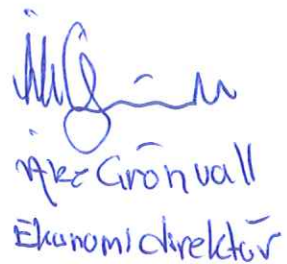 Åke Grönvall
Ekonomidirektör